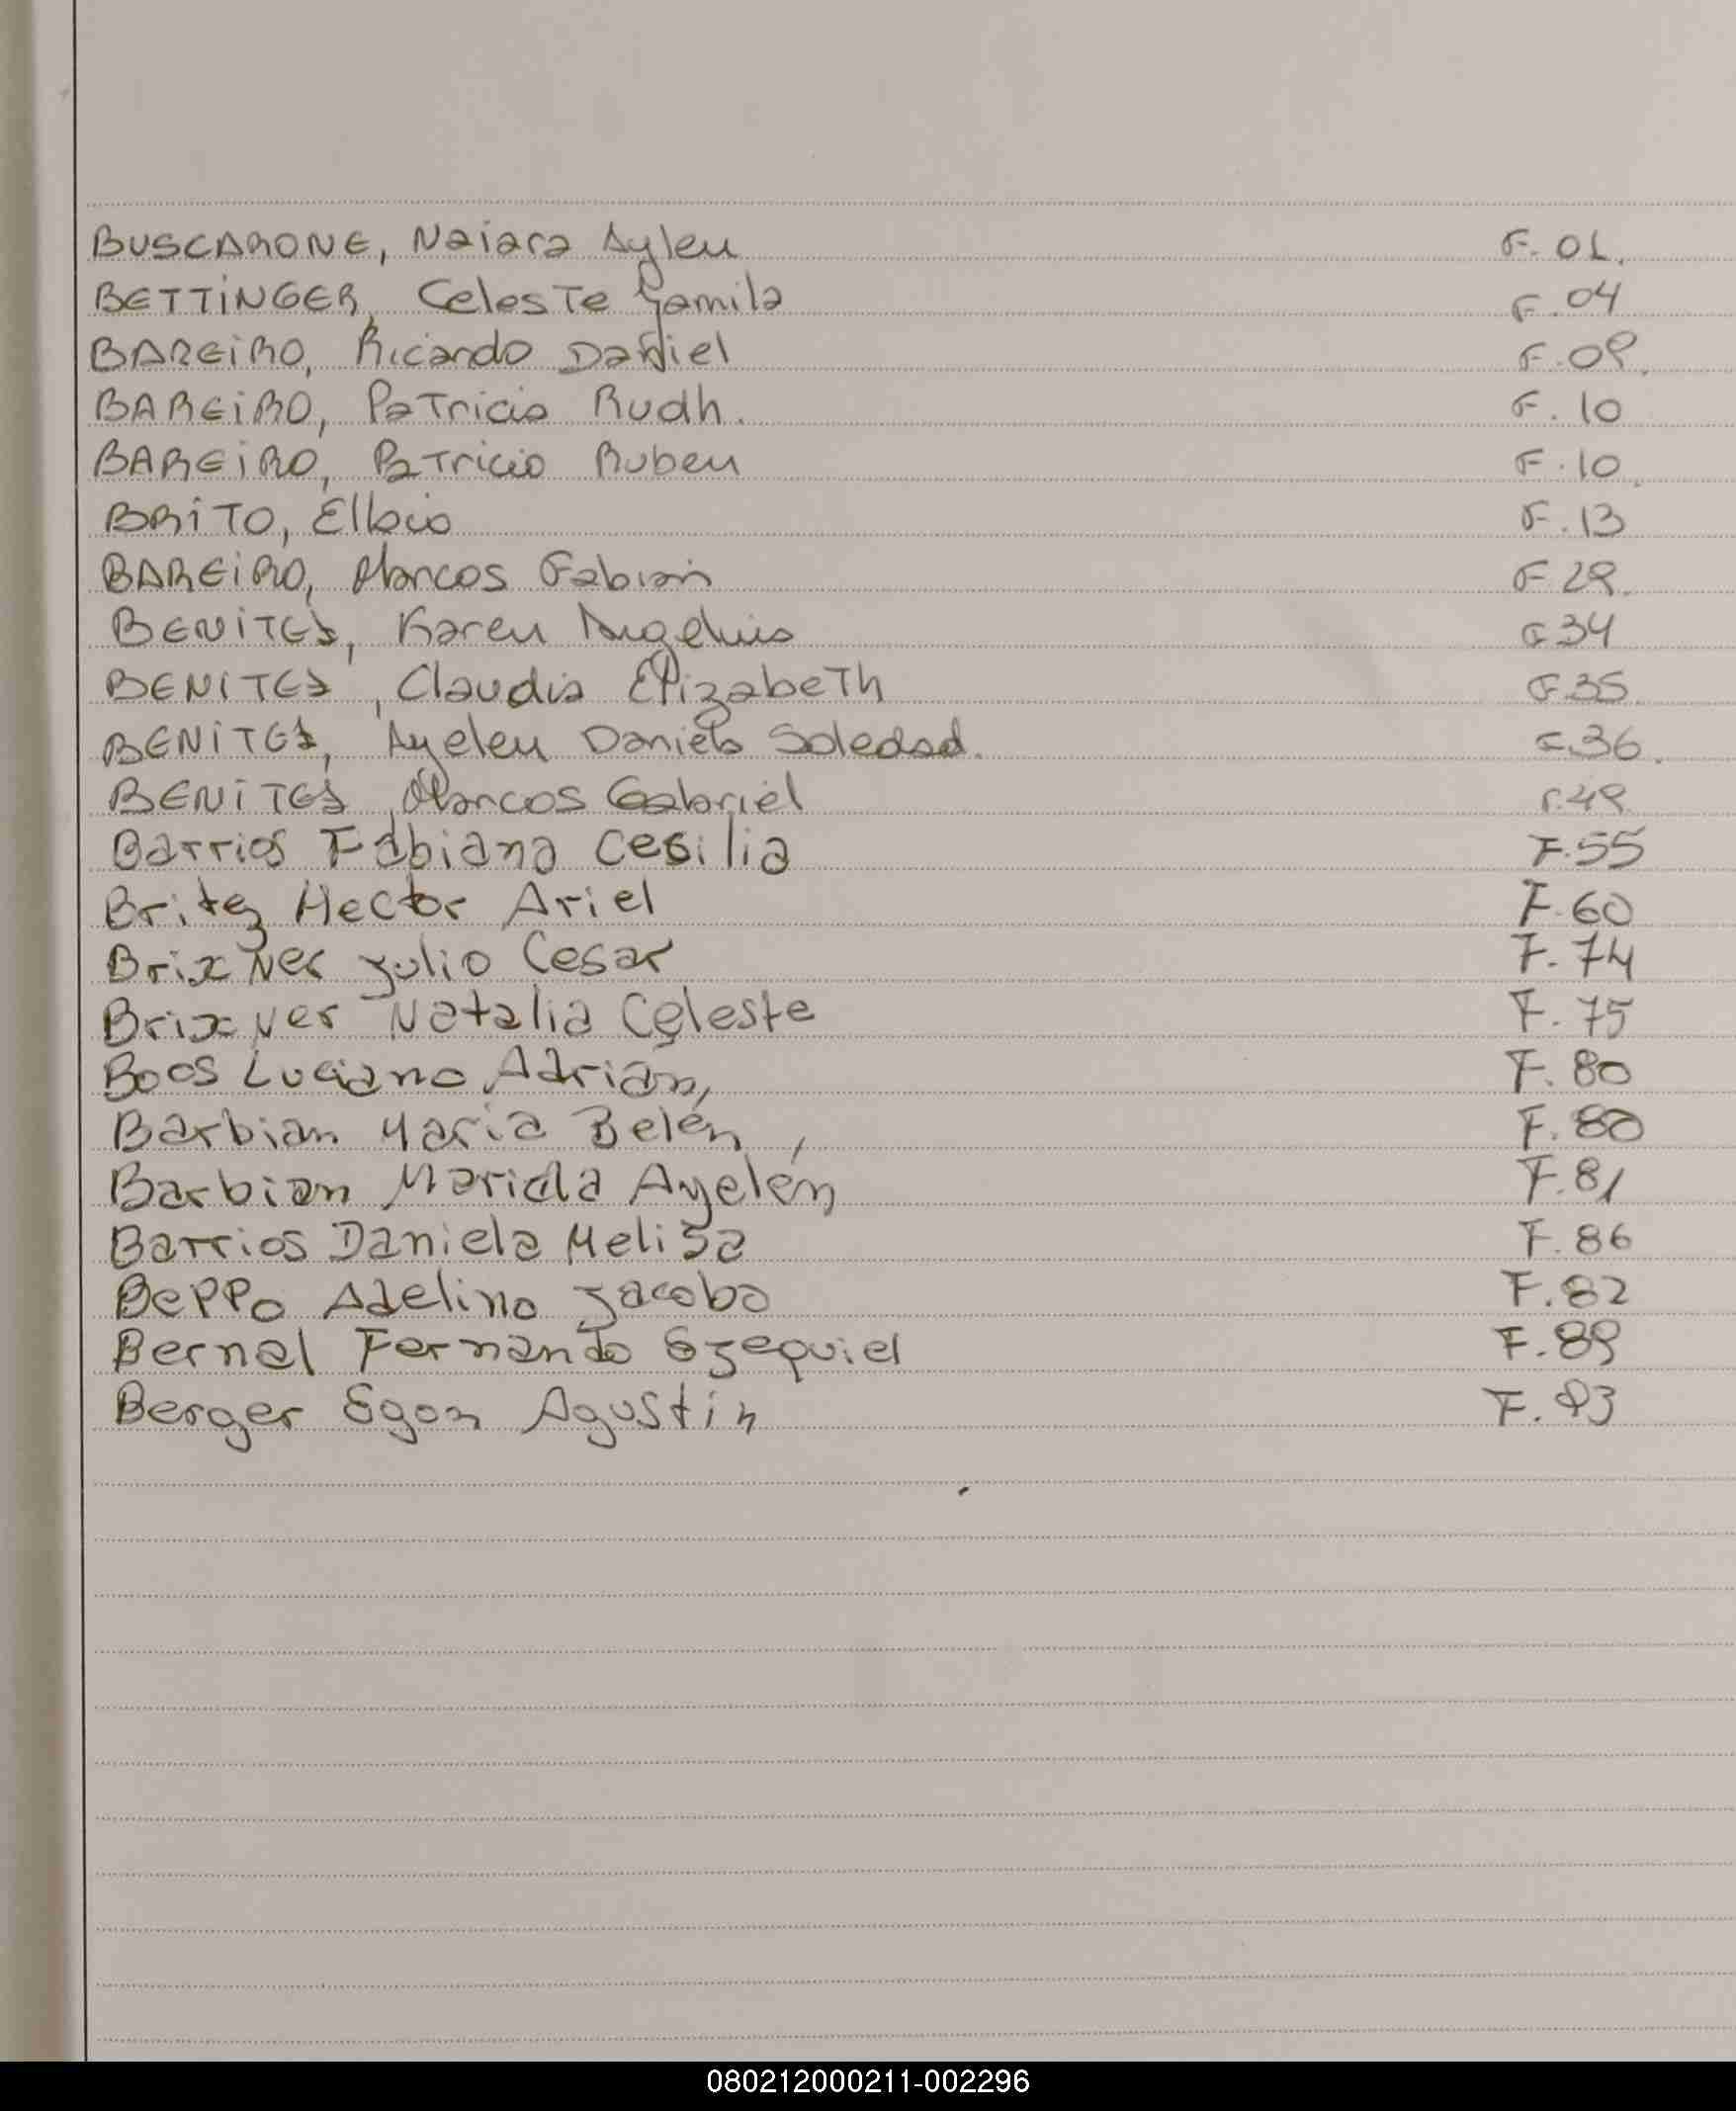 BUSCARONE, Naiara Aylen F. 01.
BETTiNGER, Celeste Yamila F. 04
BAREiRO, Ricardo Daniel F. 09.
BAREiRO, Patricia Rudh. F. 10
BAREiRO, Patricio Ruben F. 10.
BRiTO, Elbio F. 13
BAREiRO, Marcos Fabian F 29.
BENiTES, Karen Angelina F 34
BENITES, Claudia Elizabeth F.35.
BENiTES, Ayelen Daniela Soledad. F.36.
BENiTES, Marcos Gabriel F.49
Barrios Fabiana Cesilia F.55
Britez Hector Ariel F.60
Brixner Julio Cesar F. 74
Brixner Natalia Celeste F. 75
Boos Luciano Adrián, F. 80
Barbian Maria Belén, F. 80
Barbian Mariela Ayelén F.81
Barrios Daniela Melisa F. 86
Beppo Adelino Jacobo F.82
Bernal Fernando Ezequiel F.89
Berger Egon Agustin F. 93
080212000211-002296